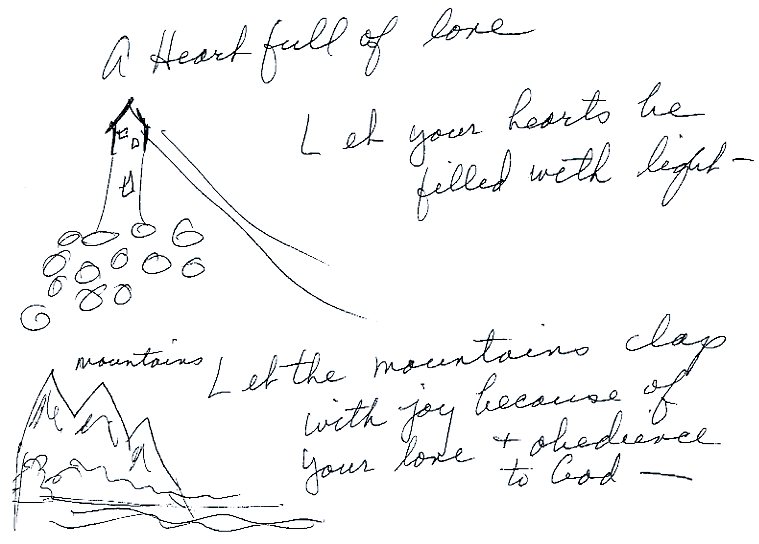 A Heart full of love
Let your hearts be
filled with light —
mountains
Let the mountains clap
with joy because of
your love + obedience
to God —